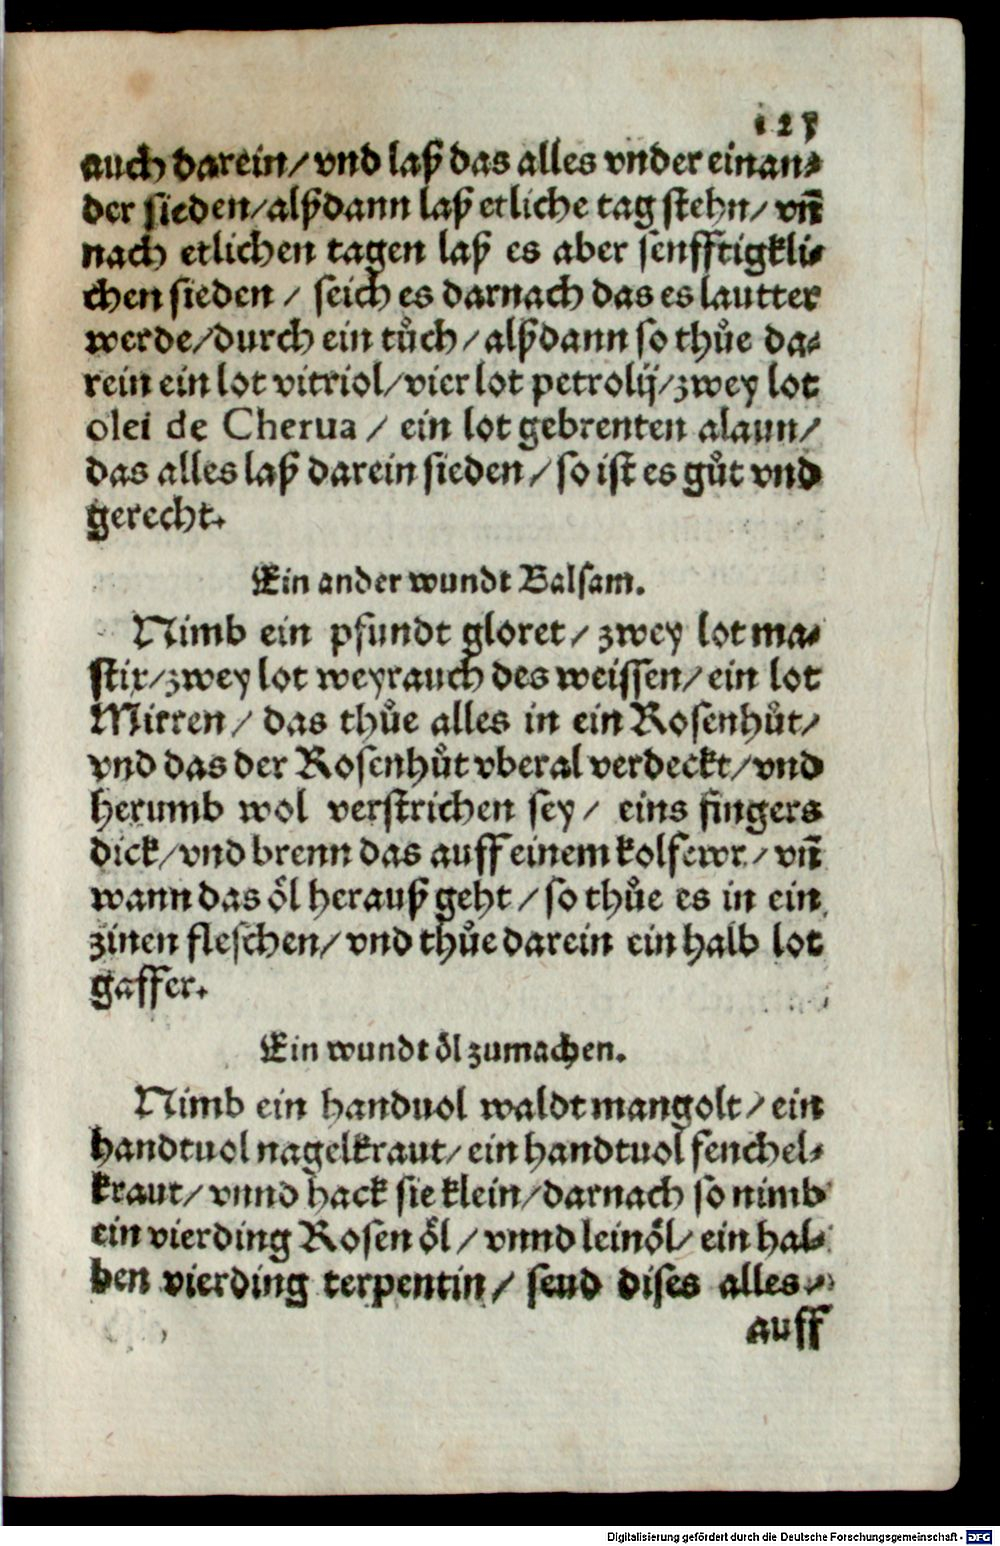 125
auch darein/ vnd laß das alles vnder einan⸗
der sieden/ alßdann laß etliche tag stehn/ vn̄
nach etlichen tagen laß es aber senfftigkli⸗
chen sieden / seich es darnach das es lautter
werde/ durch ein tůch / alßdann so thůe da⸗
rein ein lot vitriol/ vier lot petrolij/ zwey lot
olei de Cherua / ein lot gebrenten alaun/
das alles laß darein sieden / so ist es gůt vnd
gerecht.
Ein ander wundt Balsam.
Nimb ein pfundt gloret/ zwey lot ma⸗
stix/ zwey lot weyrauch des weissen/ ein lot
Mirren/ das thůe alles in ein Rosenhůt/
vnd das der Rosenhůt vberal verdeckt/ vnd
herumb wol verstrichen sey/ eins fingers
dick/ vnd brenn das auff einem kolfewr/ vn̄
wann das öl herauß geht / so thůe es in ein
zinen fleschen/ vnd thůe darein ein halb lot
gaffer.
Ein wundt öl zumachen.
Nimb ein handuol waldt mangolt/ ein
handtuol nagelkraut/ ein handtuol fenchel⸗
kraut/ vnnd hack sie klein/ darnach so nimb
ein vierding Rosen öl / vnnd leinöl/ ein hal⸗
ben vierding terpentin/ seud dises alles
auff
Digitalisierung gefördert durch die Deutsche Forschungsgemeinschaft - DFG